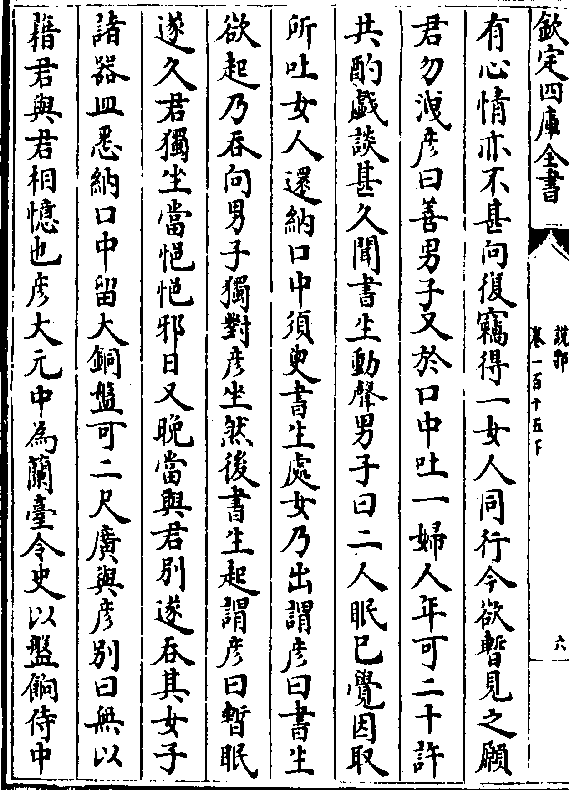 欽定四庫全書
說郛
卷一百十五下
六
有心情亦不甚向復竊得一女人同行今欲暫見之願
君勿洩彦曰善男子又於口中吐一婦人年可二十許
共酌戱談甚久聞書生動聲男子曰二人眠已覺因取
所吐女人還納口中須臾書生處女乃出謂彦曰書生
欲起乃吞向男子獨對彦坐然後書生起謂彦曰暫眠
遂久君獨坐當悒悒邪日又晚當與君別遂吞其女子
諸器皿悉納口中留大銅盤可二尺廣與彦別曰無以
藉君與君相憶也彦大元中為蘭臺令史以盤餉侍中